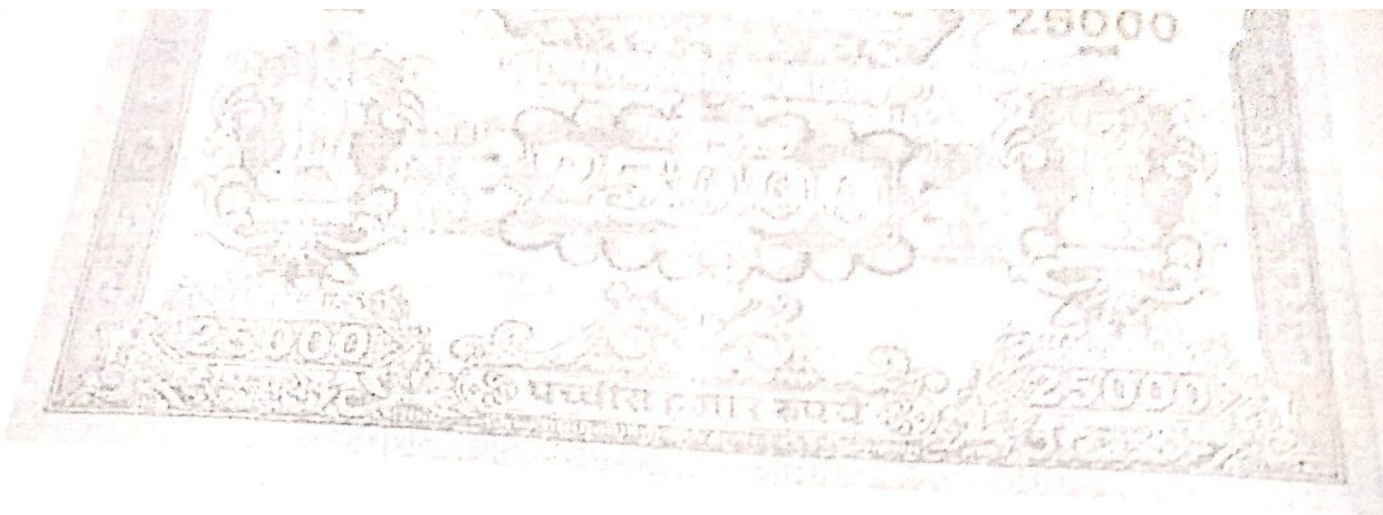 25000
25000
25000
पच्चीस हजार रुपये
25000